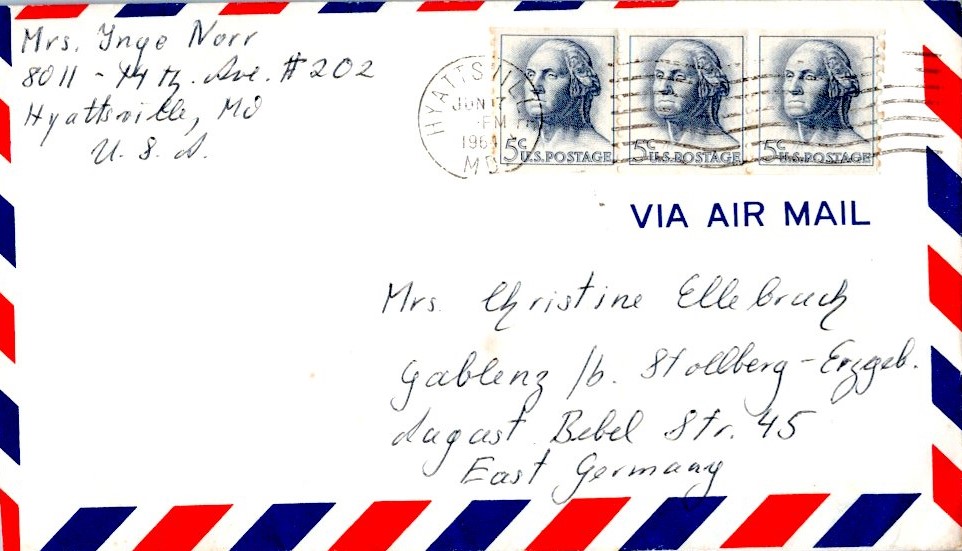 Mrs. Inge Norr
8011 - 14 th. Ave. #202
Hyattsville, MD
U. S. A.
HYATTSVILLE
JUN 17
PM
196
MD.
5¢ U.S. POSTAGE
5¢ U.S. POSTAGE
5¢ U.S. POSTAGE
VIA AIR MAIL
Mrs. Christine Ellebruch
Gablenz /b. Stollberg - Erzgeb.
August Bebel Str. 45
East Germany